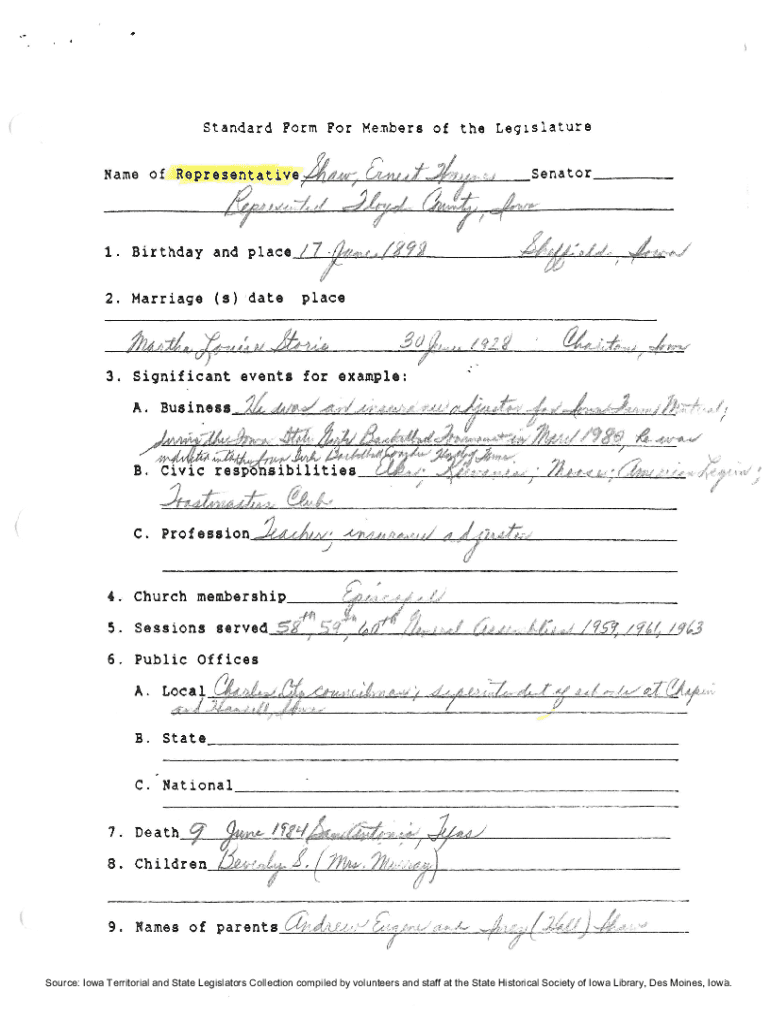 Standard Form For Members of the Legislature
Name of Representative Shaw, Ernest Haynes Senator
Represented Floyd County, Iowa
1. Birthday and place 17 June 1898 Sheffield, Iowa
2. Marriage (s) date place
Martha Louise Storie 30 June 1928 Chariton, Iowa
3. Significant events for example:
A. Business He was an insurance adjustor for Iowa Farm Mutual;
during the Iowa State Girls Basketball Tournament in March 1980, he was
inducted into the Iowa Girls Basketball Hall of Fame.
B. Civic responsibilities Elks; Kiwanis; Moose; American Legion;
Toastmasters Club
C. Profession Teacher; insurance adjustor
4. Church membership Episcopal
5. Sessions served 58th, 59th, 60th General Assemblies 1959, 1961, 1963
6. Public Offices
A. Local Charles City councilman; superintendent of schools at Chapin
and Hansell, Iowa
B. State
C. National
7. Death 9 June 1984 San Antonio, Texas
8. Children Beverly S. (Mrs. Murray)
9. Names of parents Andrew Eugene and (Hall) Shaw
Source: Iowa Territorial and State Legislators Collection compiled by volunteers and staff at the State Historical Society of Iowa Library, Des Moines, Iowa.